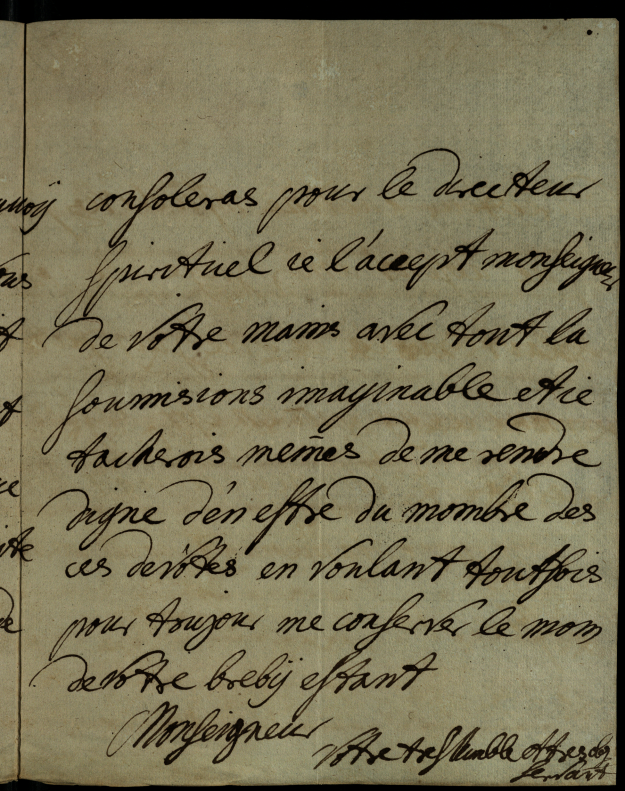 consoleras pour le directeur
spirituel ie l'accept monseigneur
de votre mains avec tout la
soumisions imaginable et ie
tacherois memes de me rendre
digne d'en estre du mombre des
ces devotes en voulant toutfois
pour toujour me conserver le mom
de votre breby estant
Monseigneur
votre tres humble et tres
servant